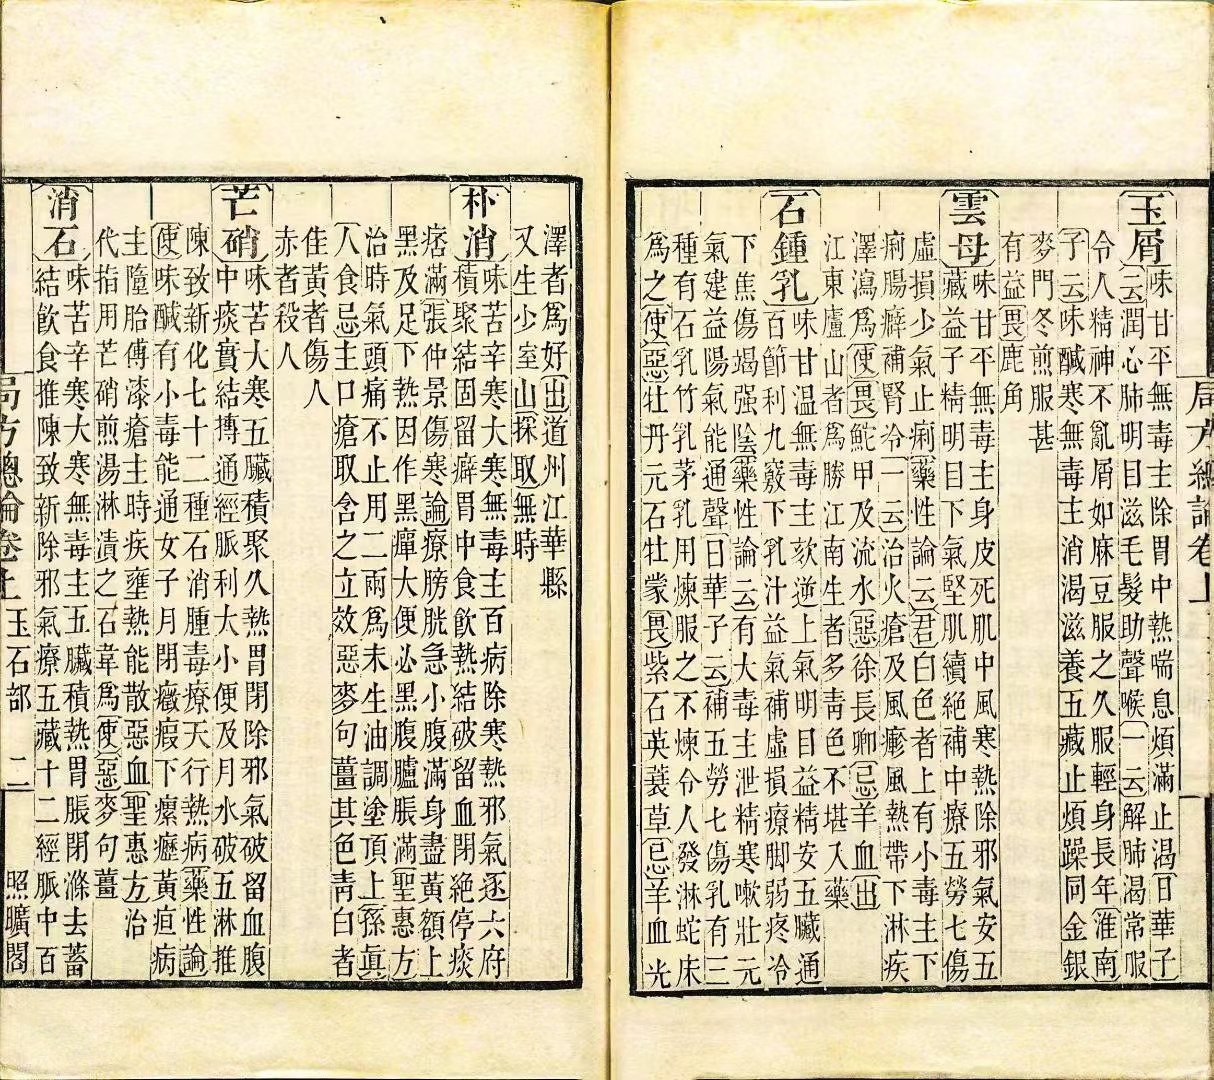 局方總論卷上
玉屑味甘平無毒主除胃中熱喘息煩滿止渴日華子
云潤心肺明目滋毛髮助聲喉一云解肺渴常服
令人精神不亂屑如麻豆服之久服輕身長年淮南
子云味鹹寒無毒主消渴滋養五藏止煩躁同金銀
麥門冬煎服甚
有益畏鹿角
雲母味甘平無毒主身皮死肌中風寒熱除邪氣安五
藏益子精明目下氣堅肌續絕補中療五勞七傷
虛損少氣止痢藥性論云君白色者上有小毒主下
痢腸癖補腎冷一云治火瘡及風瘮風熱帶下淋疾
澤瀉爲使畏鮀甲及流水惡徐長卿忌羊血出
江東廬山者爲勝江南生者多靑色不堪入藥
石鍾乳味甘溫無毒主欬逆上氣明目益精安五臟通
百節利九竅下乳汁益氣補虛損療脚弱疼冷
下焦傷竭强陰藥性論云有大毒主泄精寒嗽壯元
氣建益陽氣能通聲日華子云補五勞七傷乳有三
種有石乳竹乳茅乳用煉服之不煉令人發淋蛇床
爲之使惡牡丹元石牡蒙畏紫石英蘘草忌羊血光
澤者爲好出道州江華縣
又生少室山採取無時
朴消味苦辛寒大寒無毒主百病除寒熱邪氣逐六府
積聚結固留癖胃中食飲熱結破留血閉絕停痰
痞滿張仲景傷寒論療膀胱急小腹滿身盡黃額上
黑及足下熱因作黑癉大便必黑腹臚脹滿聖惠方
治時氣頭痛不止用二兩爲末生油調塗頂上孫眞
人食忌主口瘡取含之立效惡麥句薑其色靑白者
佳黃者傷人
赤者殺人
芒硝味苦大寒五臟積聚久熱胃閉除邪氣破留血腹
中痰實結搏通經脈利大小便及月水破五淋推
陳致新化七十二種石消腫毒療天行熱病藥性論
使味鹹有小毒能通女子月閉癥瘕下瘰癧黃疸病
主墮胎傅漆瘡主時疾壅熱能散惡血聖惠方治
代指用芒硝煎湯淋漬之石韋爲使惡麥句薑
消石味苦辛寒大寒無毒主五臟積熱胃脹閉滌去蓄
結飲食推陳致新除邪氣療五藏十二經脈中百
局方總論卷上 玉石部 二 照曠閣